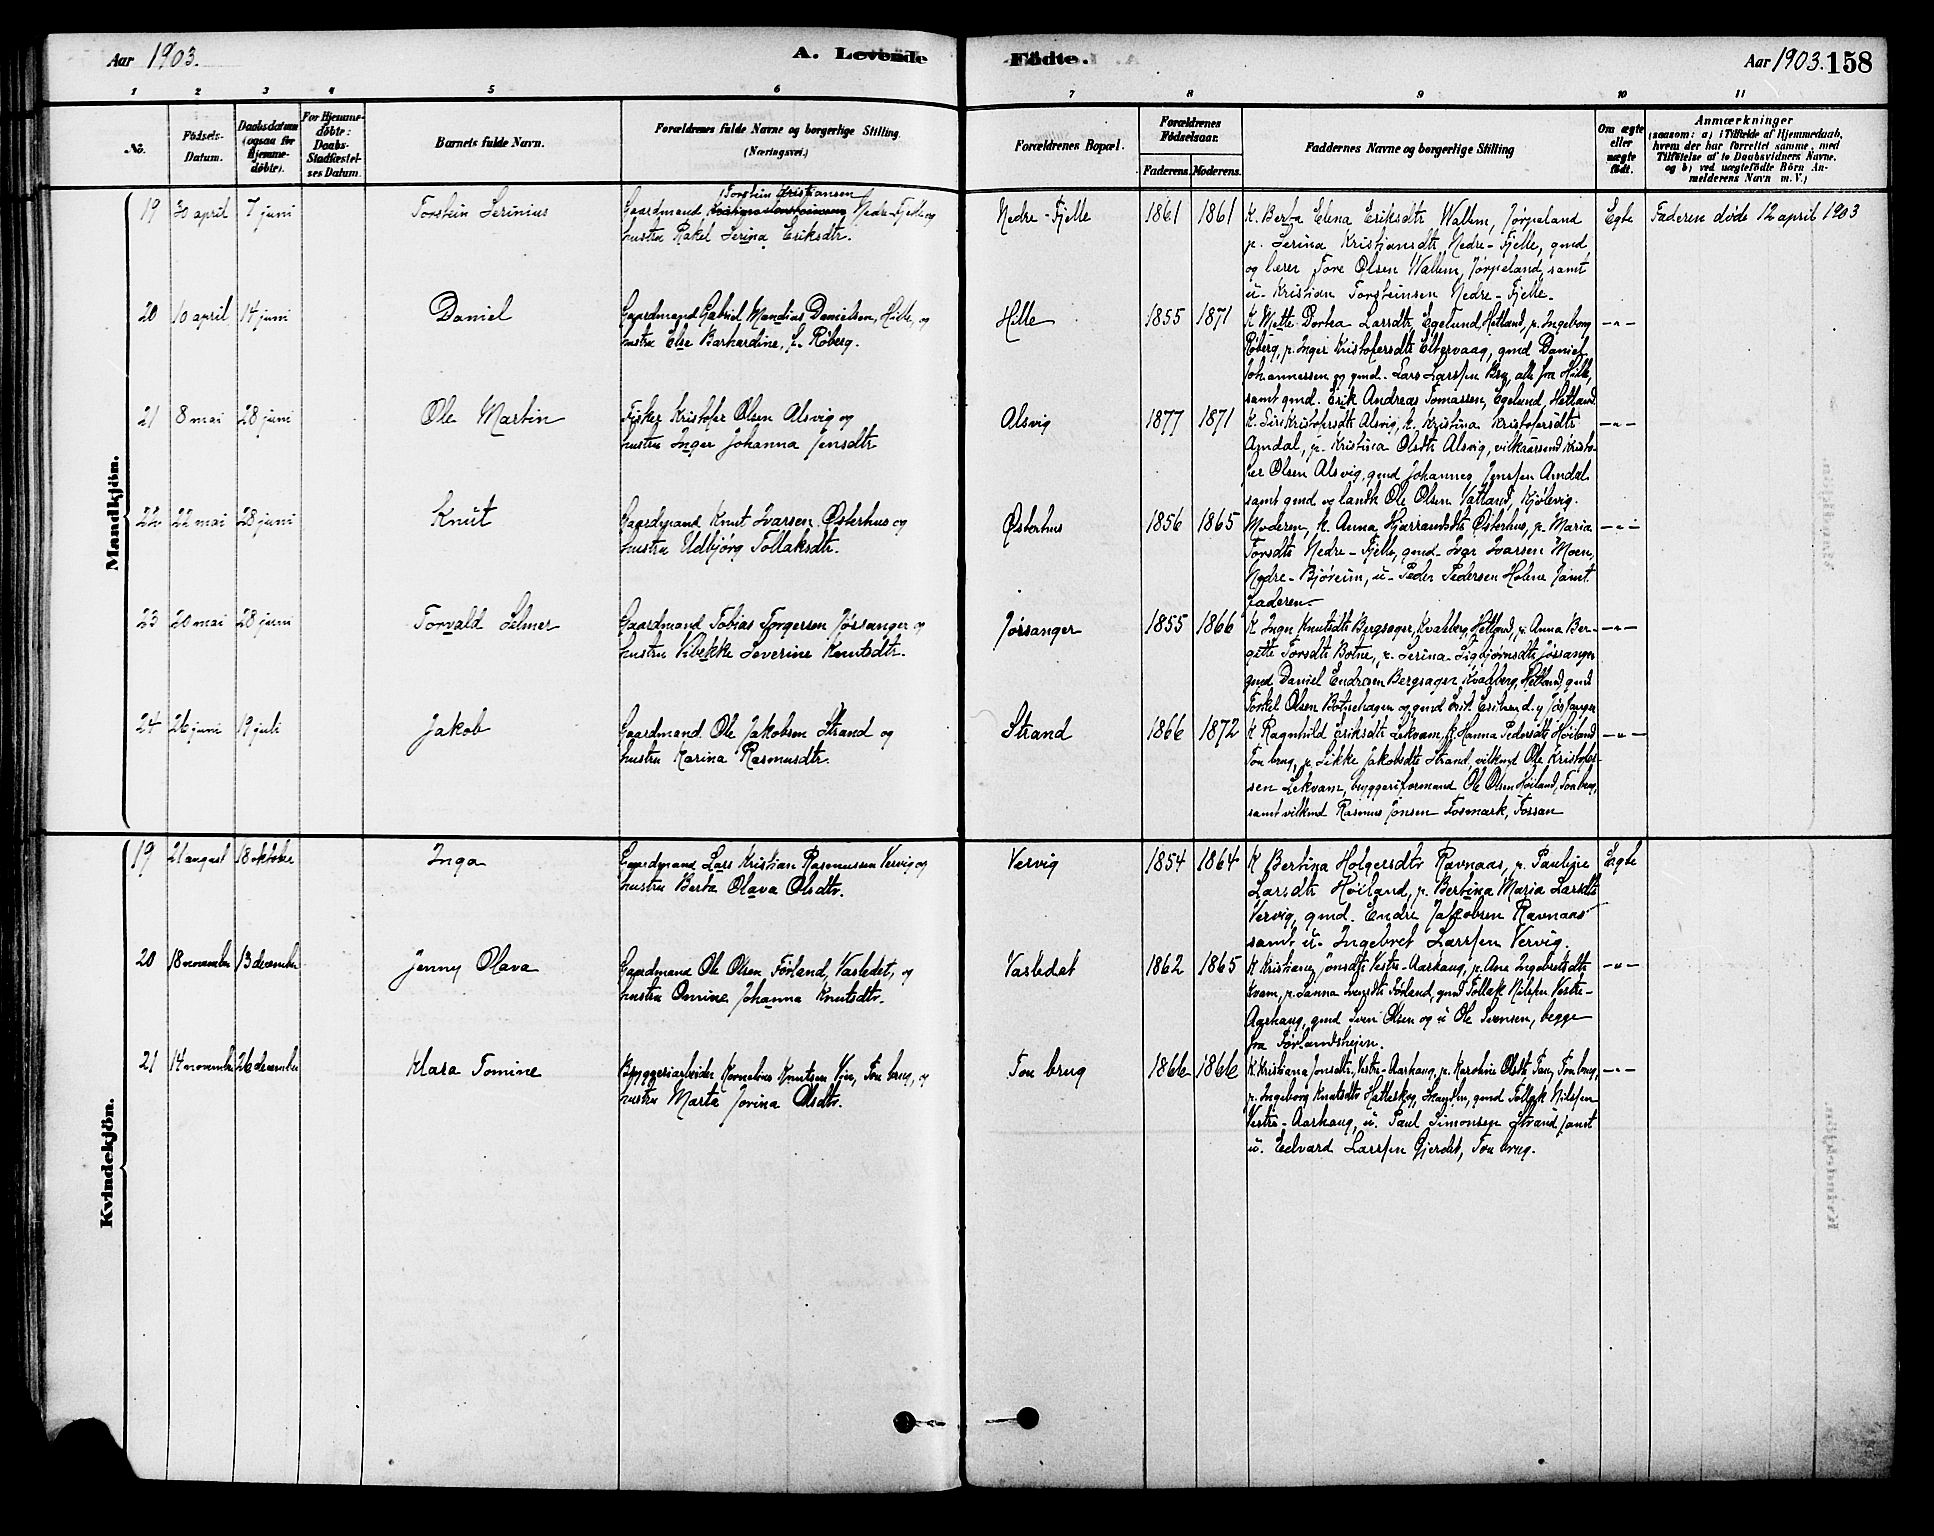 Aar 1903.
A. Levende
Födte.
Aar 1903. 158
1 2 3 4 5 6 7 8 9 10 11
No.
Födsels-
Datum.
Daabsdatum
(ogsaa for
Hjemme-
döbte).
For Hjemme-
döbte:
Daabs-
Stadfæstel-
ses Datum.
Barnets fulde Navn.
Forældrenes fulde Navne og borgerlige Stilling
(Næringsvei.)
Forældrenes Bopæl.
Forældrenes
Födselsaar.
Faderens. Moderens.
Faddernes Navne og borgerlige Stilling
Om ægte
eller
uægte
födt.
Anmærkninger
(saasom: a) i Tilfælde af Hjemmedaab,
hvem der har forrettet samme, med
Tilföielse af to Daabsvidners Navne,
og b) ved uægtefödte Börn An-
melderens Navn m. V.)
Mandkjön.
19 30 april 7 juni
Torstein Serinius
Torstein Kristiansen
Gaardmand Nedre-Fjelle og
hustru Rakel Serina Eriksdtr.
Nedre-Fjelle
1861 1861
K. Berta Elena Eriksdtr Wallem, Jørpeland
p. Serina Kristjansdtr, Nedre-Fjelle, gmd
og lærer Tore Olsen Wallem, Jørpeland, samt
u. Kristian Torsteinsen Nedre-Fjelle.
Egte
Faderen døde 12 april 1903
20 10 april 14 juni
Daniel
Gaardmand Gabriel Mandius Danielsen, Hille, og
hustru Else Barhardine, f. Røberg.
Hille
1855 1871
K Mette Dortea Larsdtr, Egelund, Hetland, p. Ingeborg
Røberg, p. Inger Kristofersdtr Eltervaag, gmd Daniel
Johannessen og gmd. Lars Larssen Bru, alle fra Hille,
samt gmd. Erik Andreas Tomassen, Egelund Hetland
-"-
21 8 mai 28 juni
Ole Martin
Fisker Kristofer Olsen Alsvig og
hustru Inger Johanna Jensdtr
Alsvig
1877 1871
K. Siri Kristofersdtr Alsvig, k. Kristina Kristofersdtr
Amdal, p. Kristina Olsdtr Alsvig, vilkaarsmd Kristo-
fer Olsen Alsvig, gmd Johannes Jenssen Amdal
samt gmd og landh Ole Olsen Vatland, Kjölevig.
-"-
22 22 mai 28 juni
Knut
Gaardmand Knut Ivarsen Østerhus og
hustru Udbjörg Tollaksdtr.
Østerhus
1856 1865
Moderen, k. Anna Hjarrandsdtr Østerhus, p. Maria
Torsdtr Nedre-Fjelle, gmd. Ivar Ivarsen Moen,
Nedre-Björeim, u. Peder Pedersen Holene samt
faderen.
-"-
23 20 mai 28 juni
Torvald Selmer
Gaardmand Tobias Torgersen Jörsanger og
hustru Vibekke Severine Knutsdtr.
Jørsanger
1855 1866
K Inger Knutsdtr Bergsager, Kvaleberg, Hetland, p. Anna Ber-
gitte Torsdtr Botne, p. Serina Sigbjörnsdtr Jössanger
gmd Daniel Endresen Bergsager Kvaleberg, Hetland, gmd
Torkel Olsen Botnehagen og gmd Erik Eriksen d. y Jössanger
-"-
24 26 juni 19 juli
Jakob
Gaardmand Ole Jakobsen Strand og
hustru Karina Rasmusdtr.
Strand
1866 1872
K Ragnhild Eriksdtr Lekvam, k Hanna Pedersdtr Höiland
Tou brug, p. Sikke Jakobsdtr Strand, vilkmd Ole Kristofer-
sen Lekvam, bryggeriformand Ole Olsen Höiland, Tou brug,
samt vilkmd Rasmus Jonsen Fosmark, Fossan
-"-
Kvindekjön.
19 21 august 18 oktober
Inga
Gaardmand Lars Kristian Rasmussen Vervig og
hustru Berta Olava Olsdtr.
Vervig
1854 1864
K Bertina Holgersdtr Ravnaas, p. Pauline
Larsdtr Höiland, p. Bertina Maria Larsdtr
Vervig, gmd. Endre Jakobsen Ravnaas
samt u. Ingebret Larssen Vervig.
Egte
20 18 november 13 december
Jenny Olava
Gaardmand Ole Olsen Førland, Vasledet, og
hustru Omine Johanna Knutsdtr.
Vasledet
1862 1865
K Kristiane Jonsdtr Vestre-Aarhaug, p. Ane Ingebretsdtr
Kvam, p. Sanna Svensdtr Førland, gmd Tollak Nilssen Vestre-
Aarhaug, gmd Sven Olsen og u Ole Svensen, begge
fra Førlandsheien.
-"-
21 14 november 26 december
Klara Tomine
Bryggeriarbeider Kornelius Knutsen Vier, Tou brug, og
hustru Marta Jorina Olsdtr.
Tou brug
1866 1866
K Kristiana Jonsdtr, Vestre-Aarhaug, p. Karoline Olsdtr Tau, Tou brug,
p. Ingeborg Knutsdtr Hatleskog, gmd Tollak Nilssen
Vestre-Aarhaug, u. Paul Simonsen Strand samt
u. Edvard Larssen Gjerdet, Tou brug.
-"-